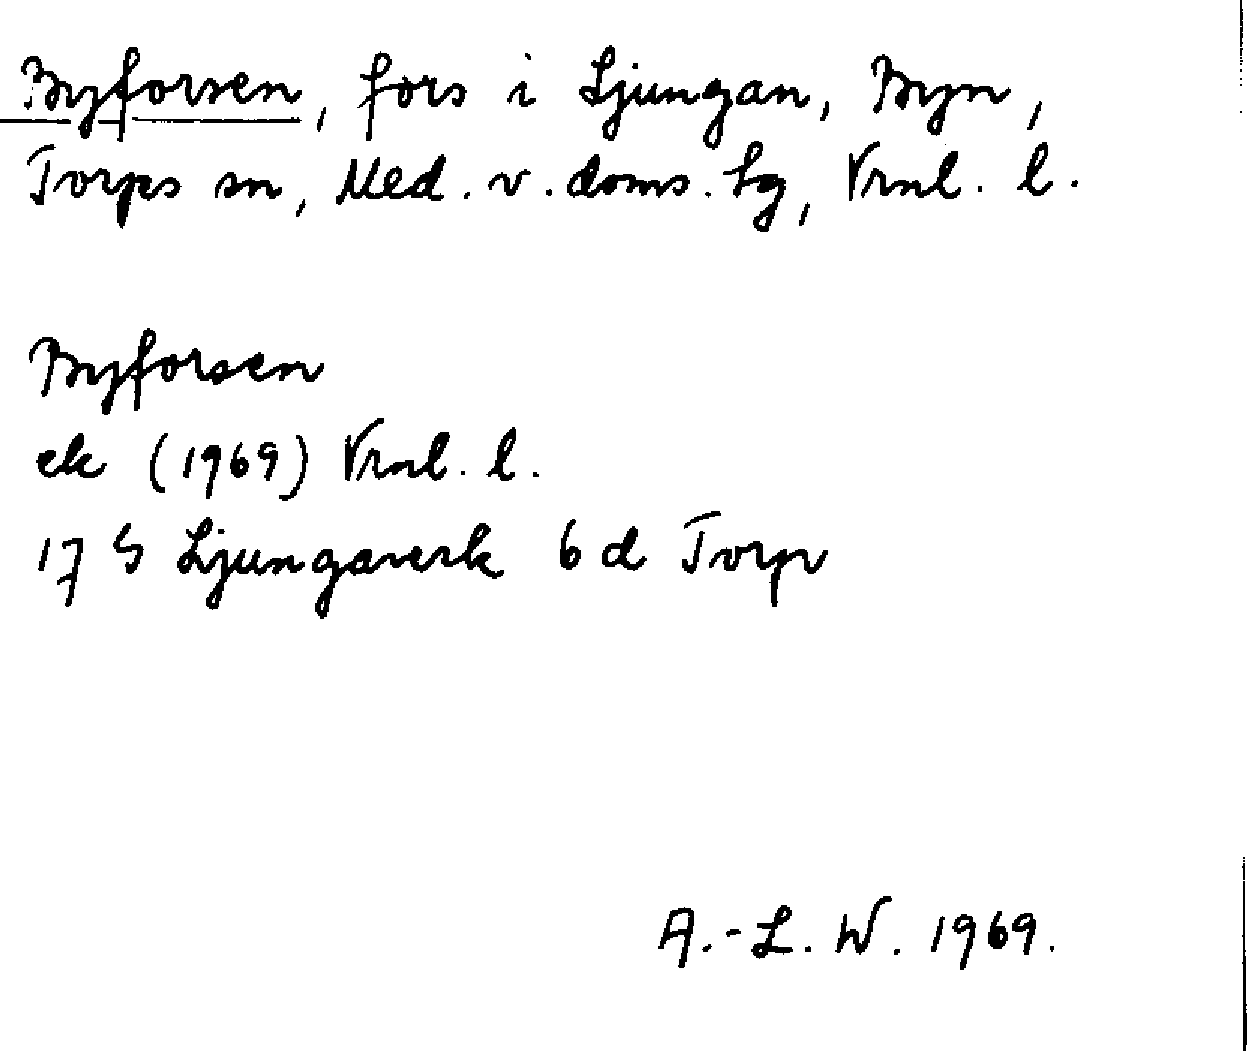 Byforsen, fors i Ljungan, Byn,
Torps sn, Med. v. doms. tg, Vrnl. l.
Byforsen
ek (1969) Vrnl. l.
17 G Ljungaverk 6 d Torp
A.-L. W. 1969.